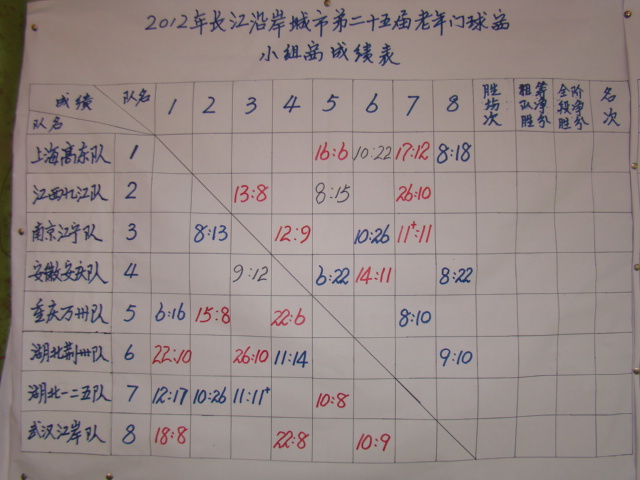 2012年长江沿岸城市第二十五届老年门球赛
小组赛成绩表
成绩 队名 队名 1 2 3 4 5 6 7 8 胜场次 粗筹队净胜分 全阶段净胜分 名次
上海高东队 1 16:6 10:22 17:12 8:18
江西九江队 2 13:8 8:15 26:10
南京江宁队 3 8:13 12:9 10:26 11⁺:11
安徽安庆队 4 9:12 6:22 14:11 8:22
重庆万州队 5 6:16 15:8 22:6 8:10
湖北荆州队 6 22:10 26:10 11:14 9:10
湖北一二五队 7 12:17 10:26 11:11⁺ 10:8
武汉江岸队 8 18:8 22:8 10:9